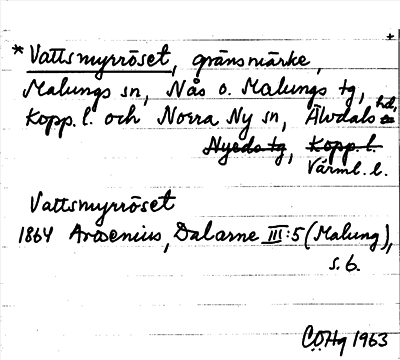 +
* Vattsmyrröset, gränsmärke,
Malungs sn, Nås o. Malungs tg,
Kopp. l. och Norra Ny sn, Älvdals hd,
Nyeds tg, Kopp. l.
Värml. l.
Vattsmyrröset
1864 Arosenius, Dalarne III:5 (Malung),
s. 6.
CÖHg 1963